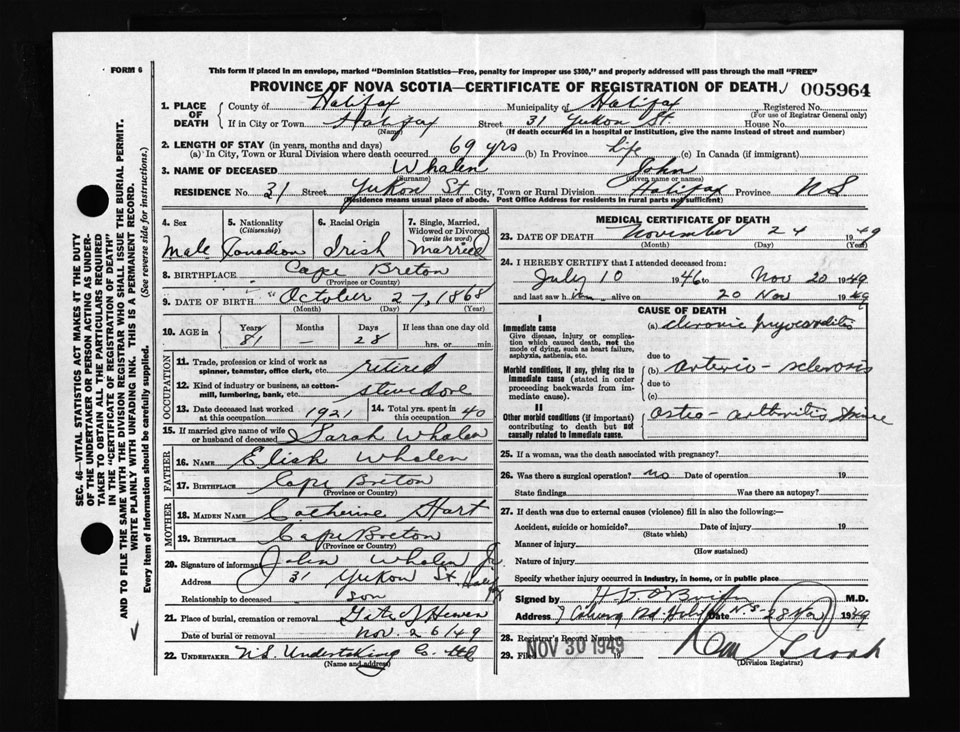 FORM 6
This form if placed in an envelope, marked "Dominion Statistics—Free, penalty for improper use $300," and properly addressed will pass through the mail "FREE"
PROVINCE OF NOVA SCOTIA—CERTIFICATE OF REGISTRATION OF DEATH 005964
1. PLACE OF DEATH County of Halifax Municipality of Halifax Registered No.
(For use of Registrar General only)
If in City or Town Halifax Street 31 Yukon St. House No.
(Name) (If death occurred in a hospital or institution, give the name instead of street and number)
2. LENGTH OF STAY (in years, months and days)
(a) In City, Town or Rural Division where death occurred 69 yrs (b) In Province Life (c) In Canada (if immigrant)
3. NAME OF DECEASED Whalen John
(Surname) (Given name or names)
RESIDENCE No. 31 Street Yukon St City, Town or Rural Division Halifax Province N S
(Residence means usual place of abode. Post Office Address for residents in rural parts not sufficient)
4. Sex Male
5. Nationality (Citizenship) Canadian
6. Racial Origin Irish
7. Single, Married, Widowed or Divorced (write the word) Married
8. BIRTHPLACE Cape Breton
(Province or Country)
9. DATE OF BIRTH October 27, 1868
(Month) (Day) (Year)
10. AGE in Years 81 Months — Days 28 If less than one day old hrs. or min.
OCCUPATION
11. Trade, profession or kind of work as spinner, teamster, office clerk, etc. retired
12. Kind of industry or business, as cotton-mill, lumbering, bank, etc. stevedore
13. Date deceased last worked at this occupation 1921 14. Total yrs. spent in this occupation 40
15. If married give name of wife or husband of deceased Sarah Whalen
FATHER
16. NAME Eliah Whalen
17. BIRTHPLACE Cape Breton
(Province or Country)
MOTHER
18. MAIDEN NAME Catherine Hart
19. BIRTHPLACE Cape Breton
(Province or Country)
20. Signature of informant John Whalen Jr
Address 31 Yukon St Halifax
Relationship to deceased son
21. Place of burial, cremation or removal Gate of Heaven
Date of burial or removal Nov. 26/49
22. UNDERTAKER N.S. Undertaking Co. Ltd
(Name and address)
MEDICAL CERTIFICATE OF DEATH
23. DATE OF DEATH November 24 1949
(Month) (Day) (Year)
24. I HEREBY CERTIFY that I attended deceased from:
July 10 1946 to Nov 20 1949
and last saw him alive on 20 Nov 1949
CAUSE OF DEATH
I
Immediate cause (a) chronic myocarditis
Give disease, injury or complication which caused death, not the mode of dying, such as heart failure, asphyxia, asthenia, etc.
due to
Morbid conditions, if any, giving rise to immediate cause (stated in order proceeding backwards from immediate cause).
(b) arterio-sclerosis
due to
(c)
II
Other morbid conditions (if important) contributing to death but not causally related to immediate cause.
osteo-arthritis spine
25. If a woman, was the death associated with pregnancy?
26. Was there a surgical operation? no Date of operation 19
State findings Was there an autopsy?
27. If death was due to external causes (violence) fill in also the following:—
Accident, suicide or homicide? Date of injury 19
(State which)
Manner of injury
(How sustained)
Nature of injury
Specify whether injury occurred in industry, in home, or in public place
Signed by M.D.
Address Rd. N.S. Date 28 Nov 1949
28. Registrar's Record Number
29. Filed NOV 30 1949 19
(Division Registrar)
SEC. 46—VITAL STATISTICS ACT MAKES IT THE DUTY
OF THE UNDERTAKER OR PERSON ACTING AS UNDER-
TAKER TO OBTAIN ALL THE PARTICULARS REQUIRED
IN THE "CERTIFICATE OF REGISTRATION OF DEATH"
AND TO FILE THE SAME WITH THE DIVISION REGISTRAR WHO SHALL ISSUE THE BURIAL PERMIT.
WRITE PLAINLY WITH UNFADING INK. THIS IS A PERMANENT RECORD.
Every item of information should be carefully supplied. (See reverse side for instructions.)